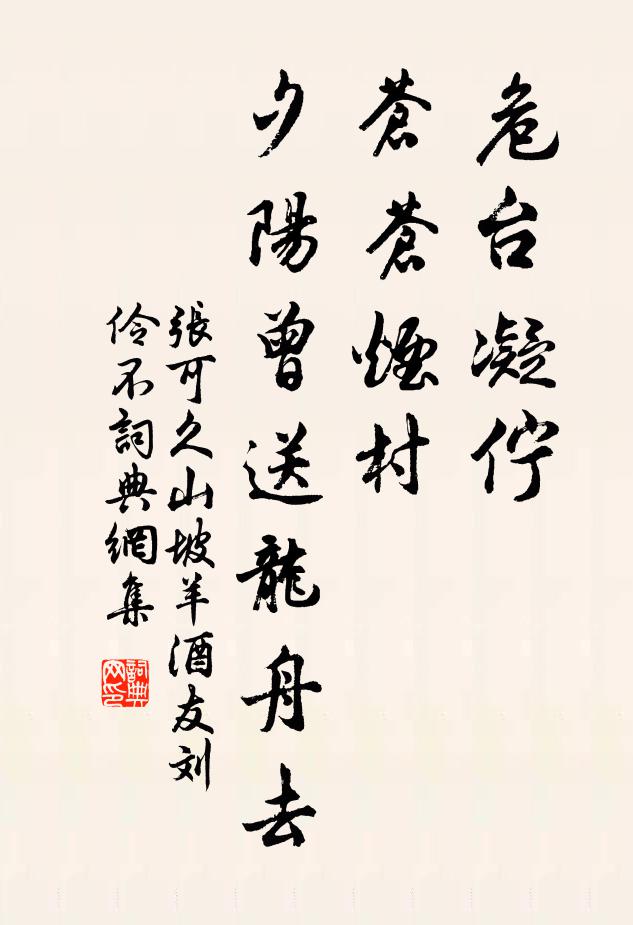 危台凝佇
蒼蒼煙村
夕陽曾送龍舟去
張可久山坡羊酒友刘
伶不詞典網集
詞典网印